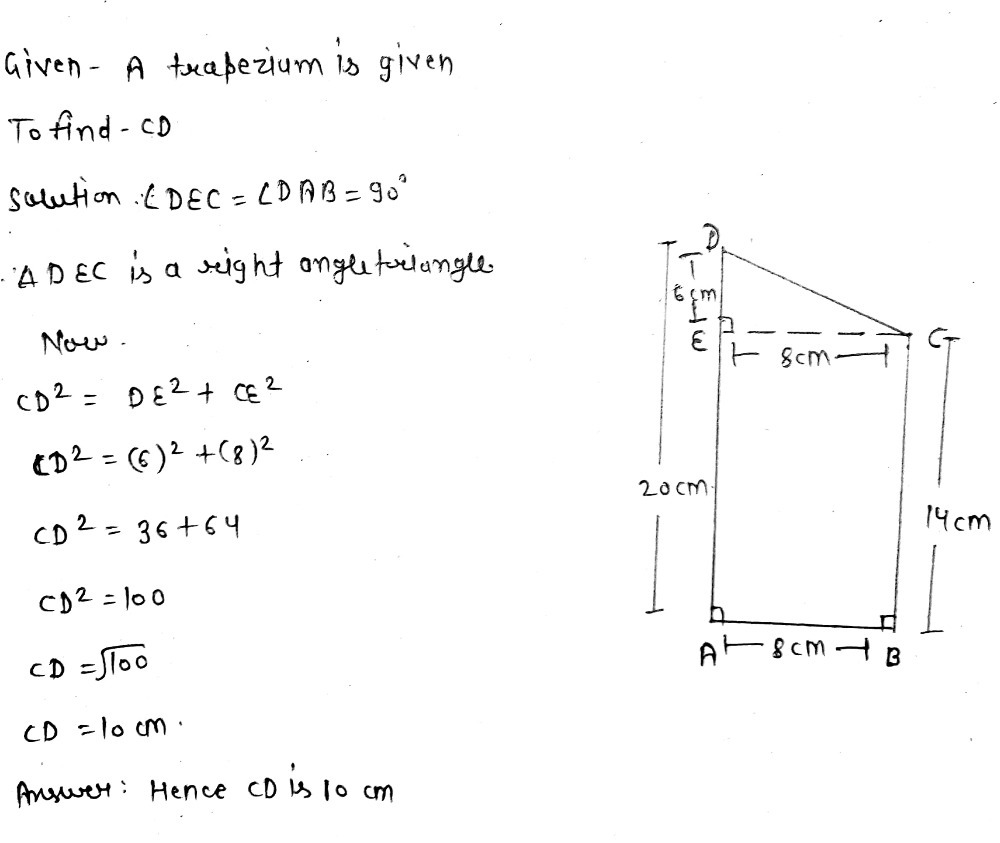 Given - A trapezium is given
To find - CD
Solution :∠DEC = ∠DAB = 90°
∴ Δ DEC is a right angle triangle
Now -
CD² = DE² + CE²
CD² = (6)² + (8)²
CD² = 36 + 64
CD² = 100
CD = √100
CD = 10 cm.
Answer: Hence CD is 10 cm
D
6 cm
E
C
8cm
20cm
14cm
A
8cm
B